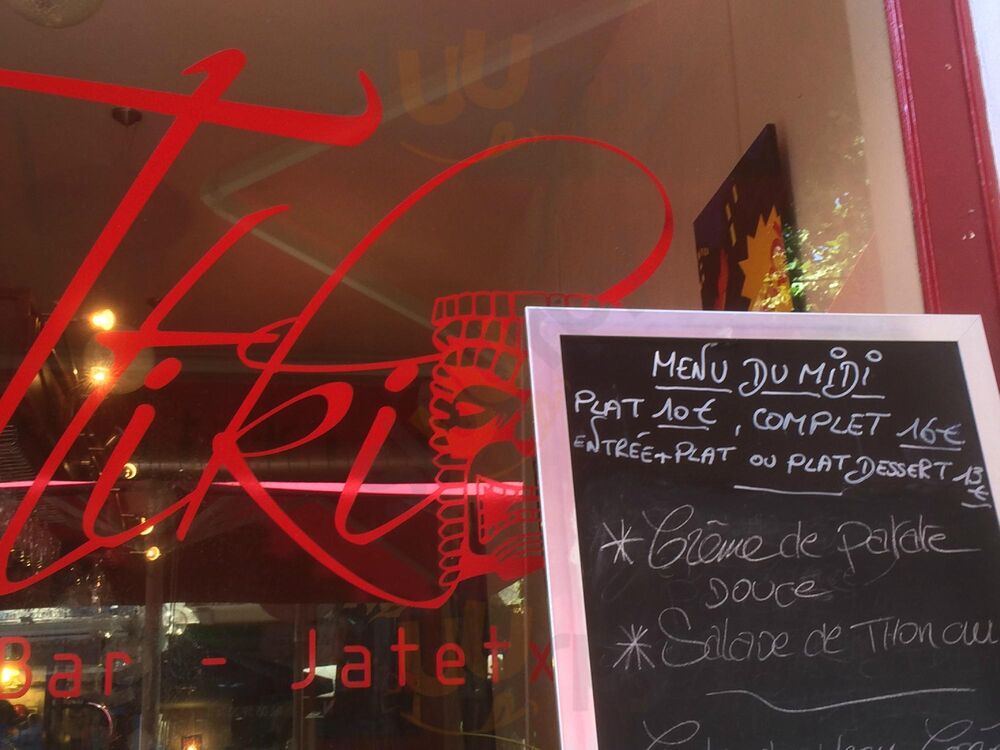 Tiki
Bar - Jatetx
MENU DU MIDI
PLAT 10€, COMPLET 16€
ENTRÉE+PLAT OU PLAT DESSERT 13€
* Crème de patate
DOUCE
* Salade de THON au